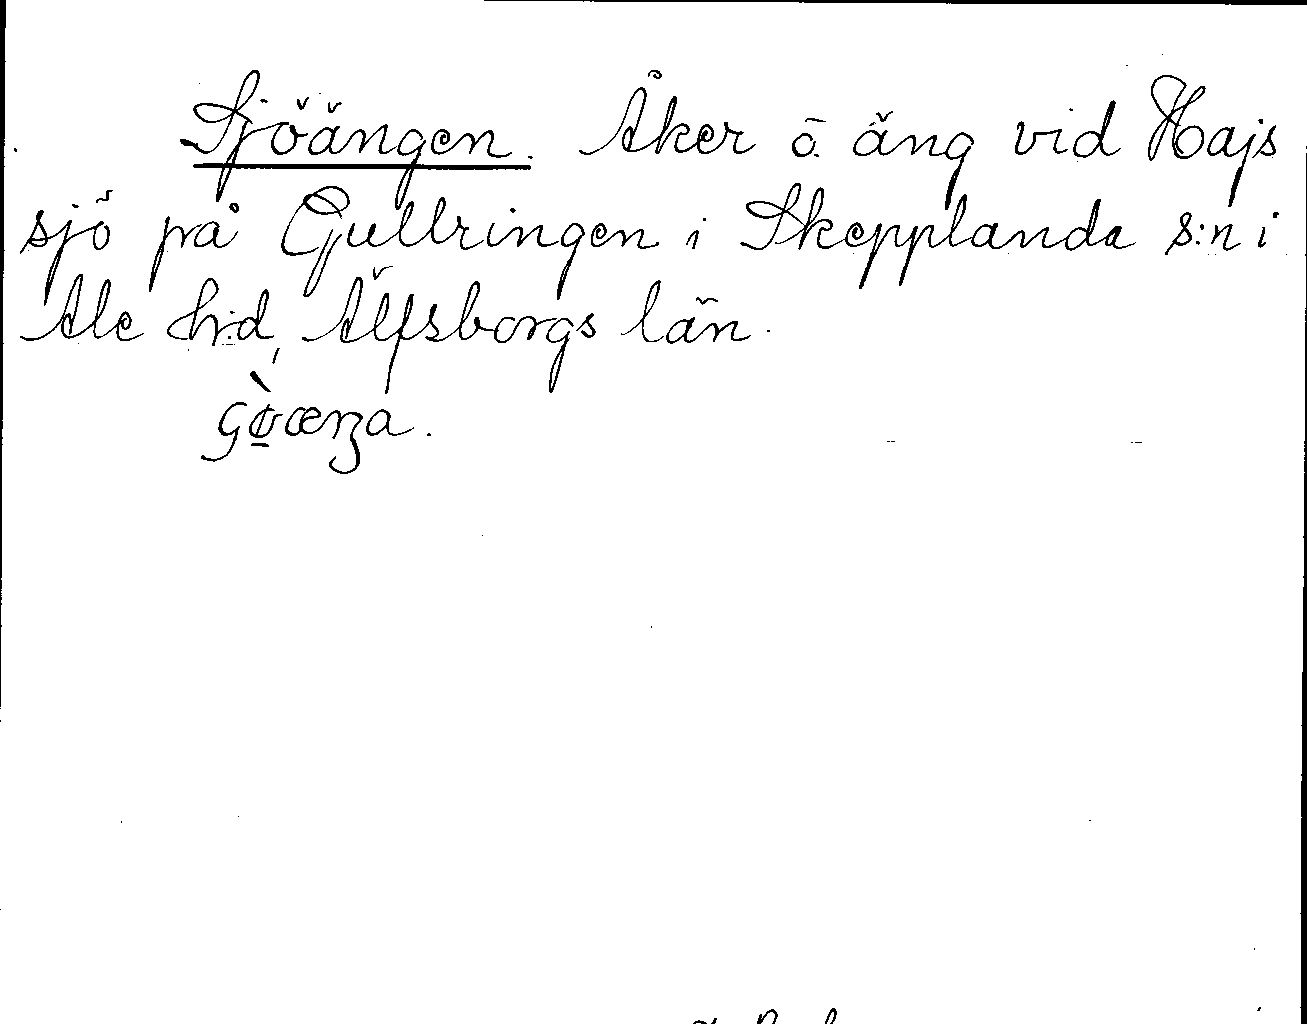 Sjöängen. Åker o. äng vid Hajs
sjö på Gullringen i Skepplanda s:n i
Ale h:d, Älfsborgs län.